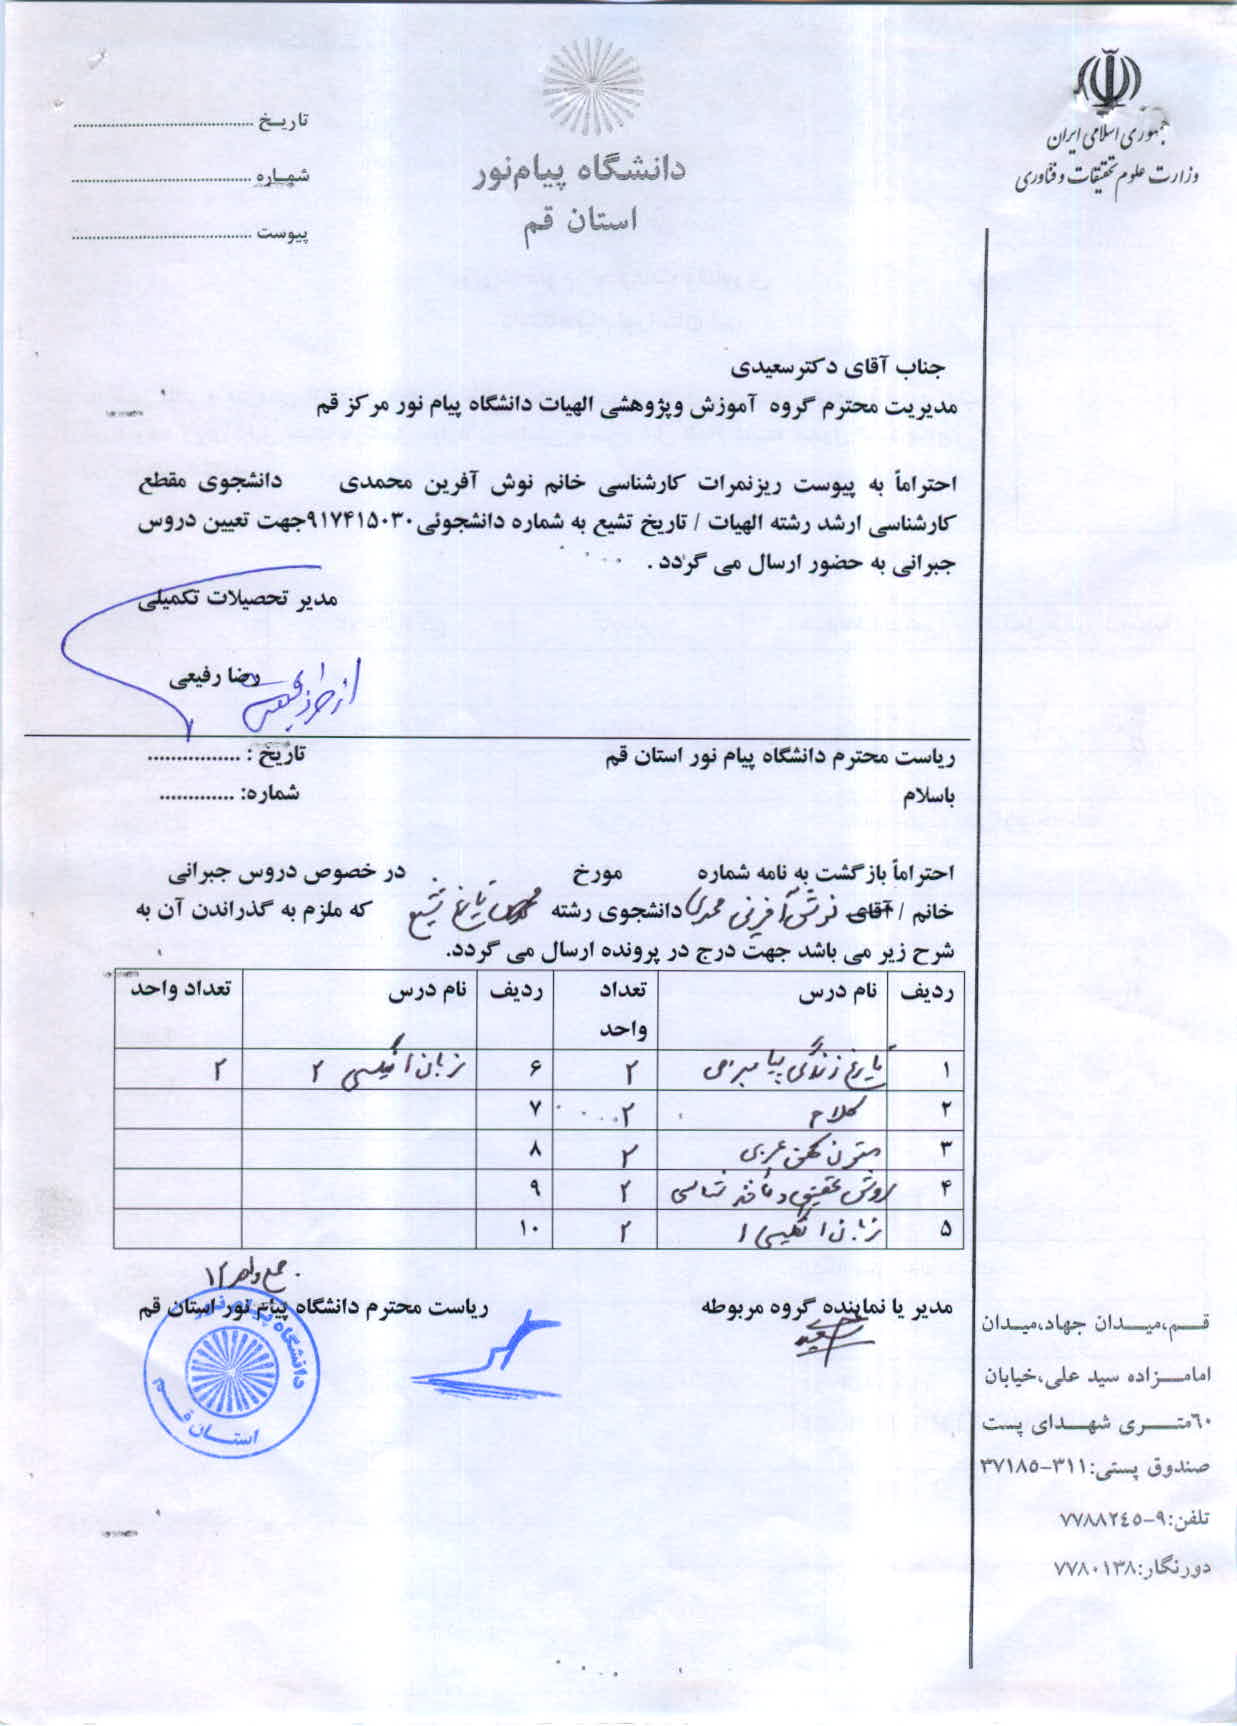 جمهوری اسلامی ایران
وزارت علوم تحقیقات و فناوری
دانشگاه پیام‌نور
استان قم
تاریخ ........................
شماره ........................
پیوست ........................
جناب آقای دکترسعیدی
مدیریت محترم گروه آموزش وپژوهشی الهیات دانشگاه پیام نور مرکز قم
احتراماً به پیوست ریزنمرات کارشناسی خانم نوش آفرین محمدی دانشجوی مقطع
کارشناسی ارشد رشته الهیات / تاریخ تشیع به شماره دانشجوئی۹۱۷۴۱۵۰۳۰جهت تعیین دروس
جبرانی به حضور ارسال می گردد .
مدیر تحصیلات تکمیلی
رضا رفیعی
ریاست محترم دانشگاه پیام نور استان قم
تاریخ : ................
باسلام
شماره: .............
احتراماً بازگشت به نامه شماره مورخ در خصوص دروس جبرانی
خانم / آقای نوش آفرین محمدی دانشجوی رشته تاریخ تشیع که ملزم به گذراندن آن به
شرح زیر می باشد جهت درج در پرونده ارسال می گردد.
ردیف نام درس تعداد واحد ردیف نام درس تعداد واحد
۱ تاریخ زندگی پیامبر ۲ ۶ زبان انگلیسی ۲ ۲
۲ کلام ۲ ۷
۳ متون کهن عربی ۲ ۸
۴ روش تحقیق و مأخذ شناسی ۲ ۹
۵ زبان انگلیسی ۱ ۲ ۱۰
جمع واحد ۱۲
مدیر یا نماینده گروه مربوطه
ریاست محترم دانشگاه پیام نور استان قم
دانشگاه پیام نور
استان قم
قم،میدان جهاد،میدان
امامزاده سید علی،خیابان
۶۰متری شهدای پست
صندوق پستی:۳۱۱-۳۷۱۸۵
تلفن:۹-۷۷۸۸۲۴۵
دورنگار:۷۷۸۰۱۳۸